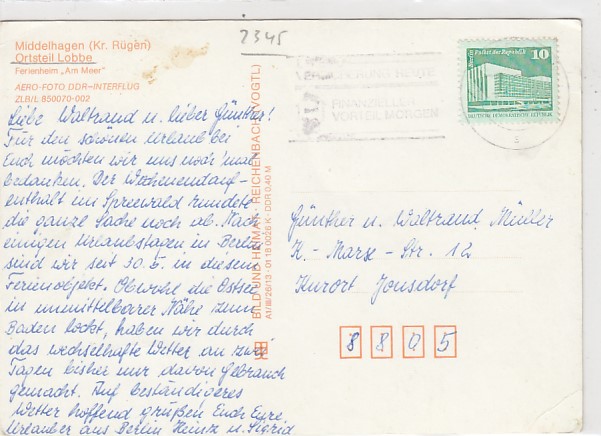 2345
Middelhagen (Kr. Rügen)
Ortsteil Lobbe
Ferienheim „Am Meer"
AERO-FOTO DDR–INTERFLUG
ZLB/L 850070-002
Liebe Waltraud u. lieber Günther!
Für den schönen Urlaub bei
Euch möchten wir uns noch 'mal
bedanken. Der Wochenendauf-
enthalt im Spreewald rundete
die ganze Sache noch ab. Nach
einigen Urlaubstagen in Berlin
sind wir seit 30.5. in diesem
Ferienobjekt. Obwohl die Ostsee
in unmittelbarer Nähe zum
Baden lockt, haben wir durch
das wechselhafte Wetter an zwei
Tagen bisher nur davon Gebrauch
gemacht. Auf beständigeres
Wetter hoffend grüßen Euch Eure
Urlauber aus Berlin Heinz u. Sigrid
BILD UND HEIMAT · REICHENBACH (VOGTL)
A1/III/26/13 · 01 18 0026 K · DDR 0,40 M
VERSICHERUNG HEUTE
FINANZIELLER
VORTEIL MORGEN
Berlin, Palast der Republik
10
DEUTSCHE DEMOKRATISCHE REPUBLIK
Günther u. Waltraud Müller
K.-Marx-Str. 12
Kurort Jonsdorf
8805